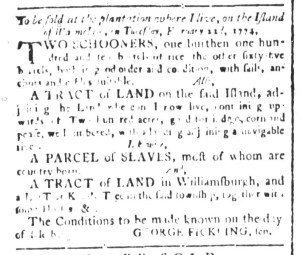 To be sold at the plantation where I live, on the Island
of on Tuesday, 22d, 1774,
TWO SCHOONERS, one burthen one hun-
dred and ten barrels of rice, the other sixty five
barrels, both in good order and condition, with sails, an-
chors and cables suitable. Also,
A TRACT of LAND on the said Island, ad-
joining the Land whereon I now live, containing up-
wards of Two hundred acres, good for indigo, corn and
pease, well timbered, with a adjoining a navigable
A PARCEL of SLAVES, most of whom are
country born. And,
A TRACT of LAND in Williamsburgh, and
a Lot at in the said township, together with
some &c.
The Conditions to be made known on the day
of Sale. GEORGE FICKLING, sen.